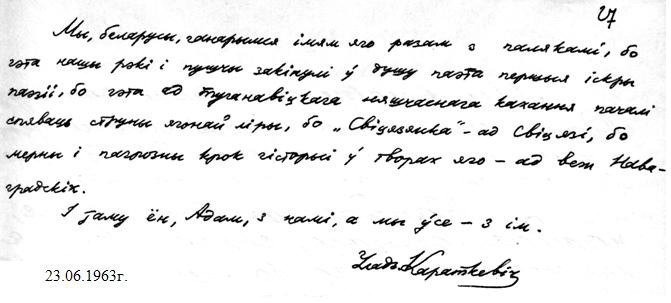 27
Мы, беларусы, ганарымся імям яго разам з палякамі, бо
гэта нашы рэкі і пушчы закінулі ў душу паэта першыя іскры
паэзіі, бо гэта ад Туганавіцкага няшчаснага кахання пачалі
спяваць струны ягонай ліры, бо „Свіцязянка“ – ад Свіцязі, бо
мерны і пагрозны крок гісторыі ў творах яго – ад веж Нава-
градскіх.
І таму ён, Адам, з намі, а мы ўсе – з ім.
Уладз Караткевіч
23.06.1963г.